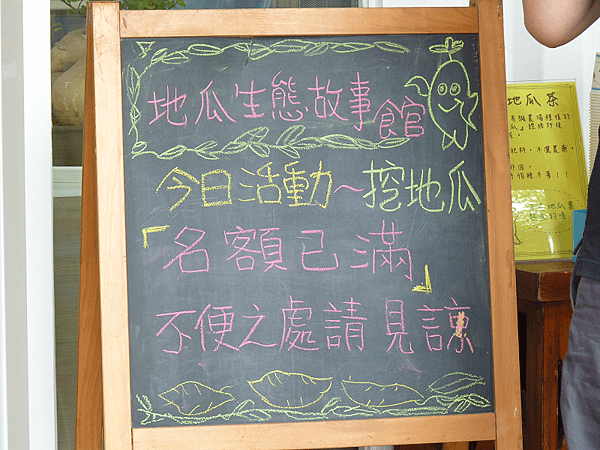 地瓜生態故事館
今日活動~挖地瓜
「名額已滿」
不便之處請見諒
地瓜茶